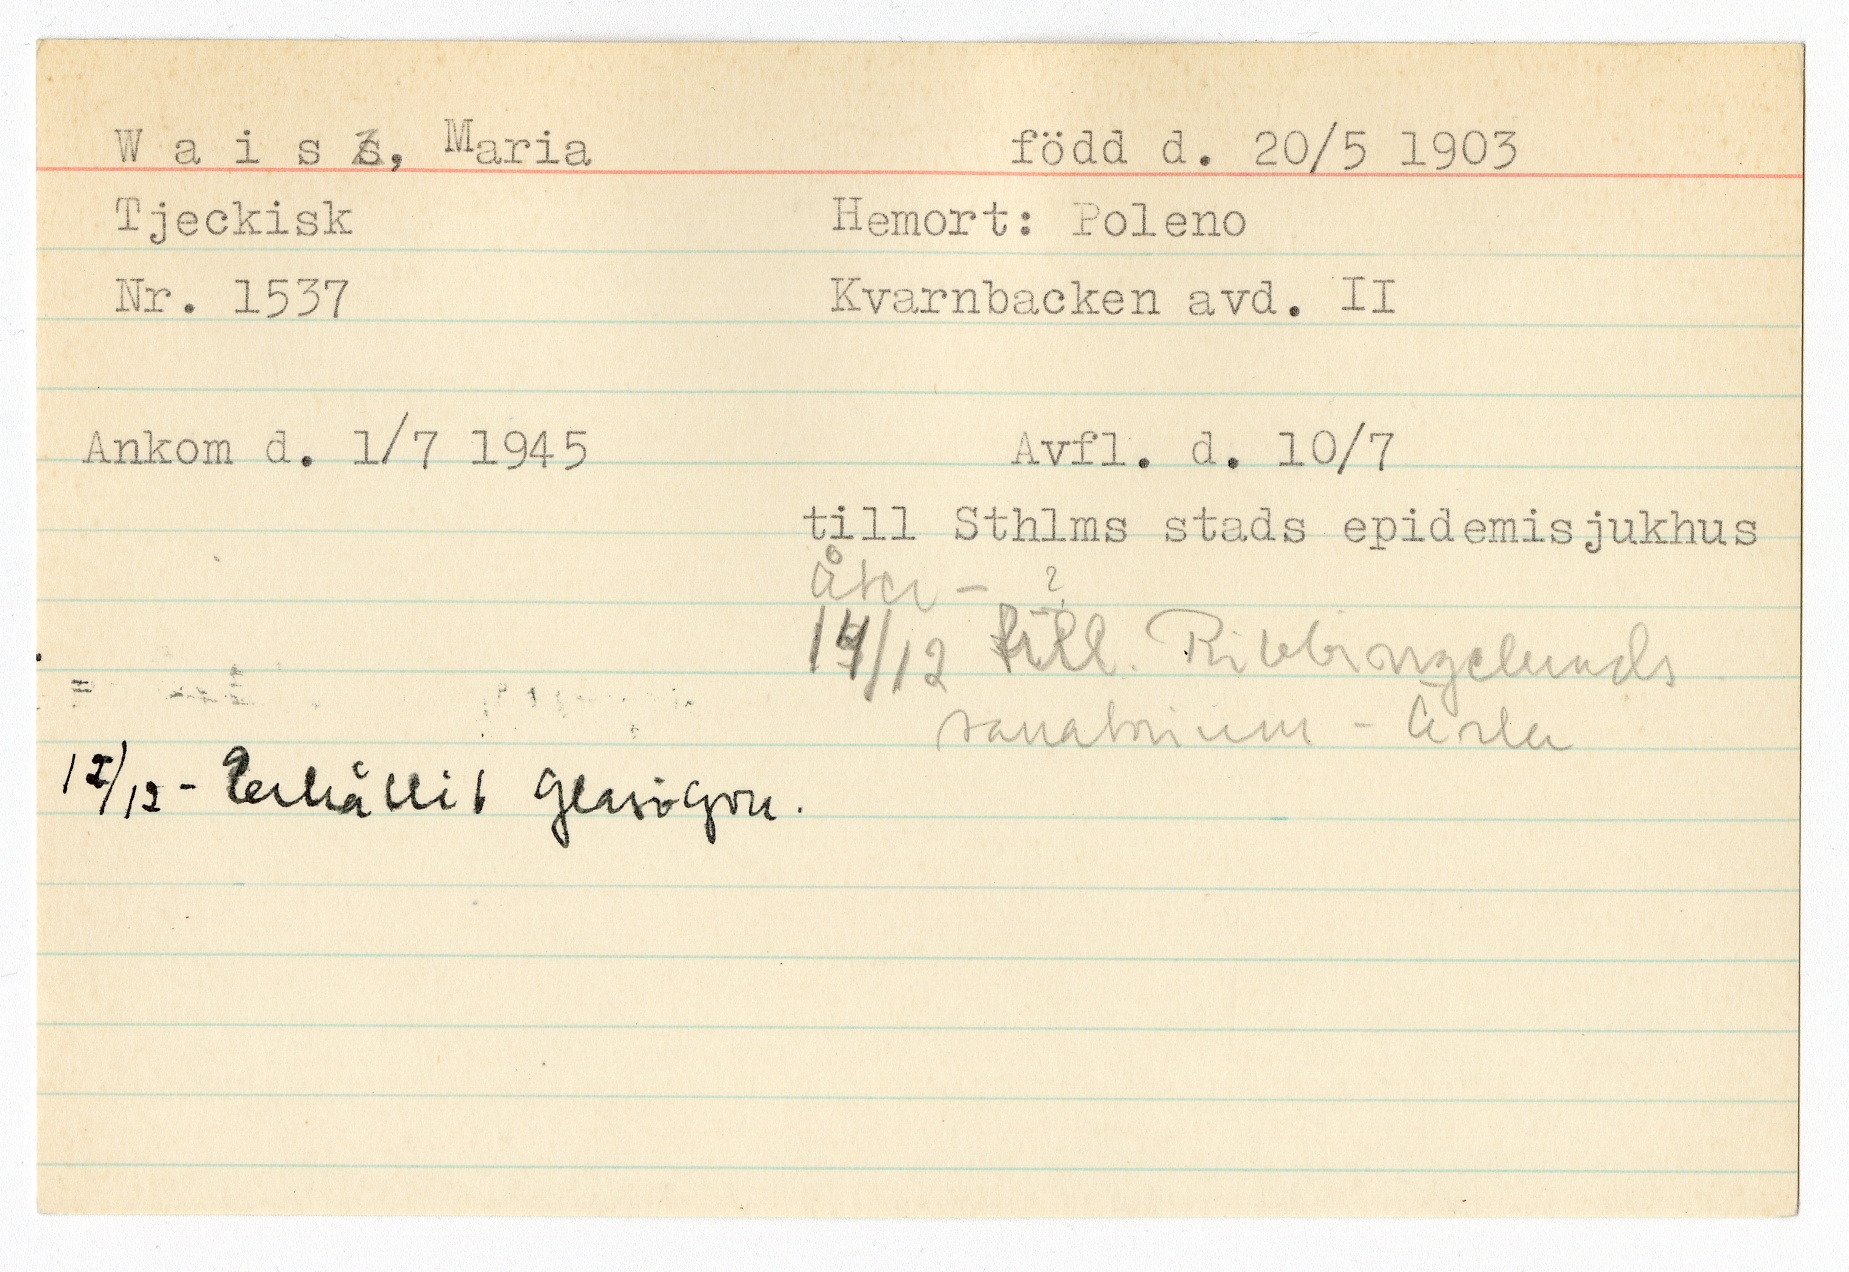 W a i s z, Maria född d. 20/5 1903
Tjeckisk Hemort: Poleno
Nr. 1537 Kvarnbacken avd. II
Ankom d. 1/7 1945 Avfl. d. 10/7
till Sthlms stads epidemisjukhus
Åter - ?
14/12 till. Ribbingelunds
sanatorium - Ärla
12/12 - Erhållit Glasögon.